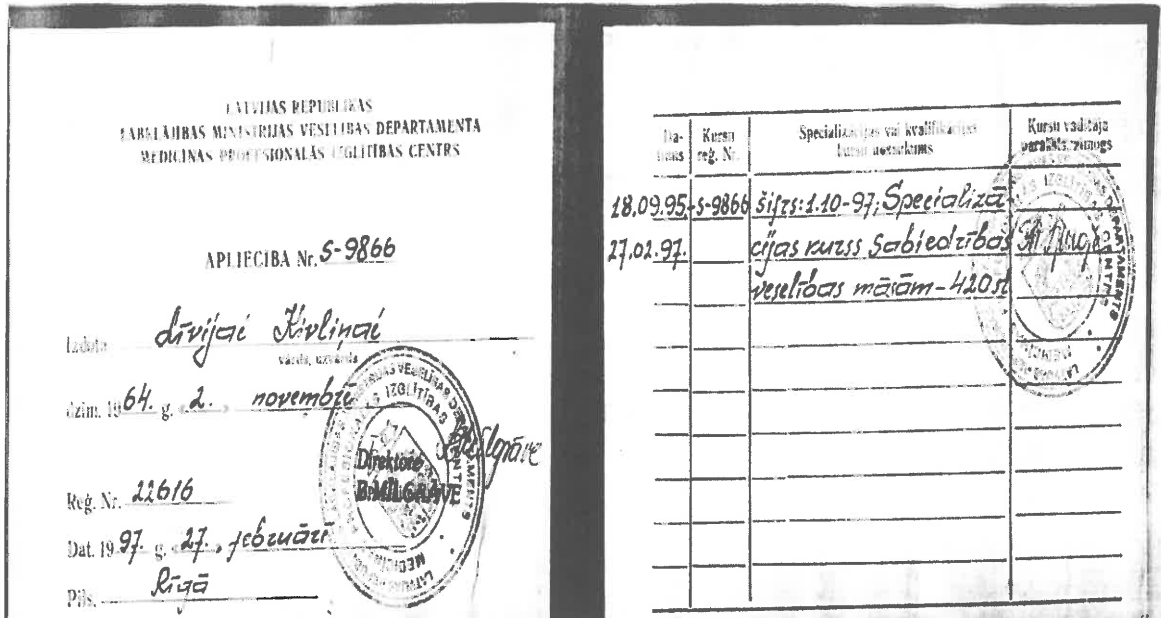 LATVIJAS REPUBLIKAS
LABKLĀJĪBAS MINISTRIJAS VESELĪBAS DEPARTAMENTA
MEDICĪNAS PROFESIONĀLĀS IZGLĪTĪBAS CENTRS
APLIECĪBA Nr. S-9866
Izdota Līvijai Kivliņai
vārds, uzvārds
dzim. 1964. g. 2. novembrī
Direktore
B.MILGRĀVE
Reģ. Nr. 22616
Dat. 1997. g. 27. februārī
Pils. Rīgā
Da- Kursu Specializācijas vai kvalifikācijas Kursu vadītāja
tums reģ. Nr. kursu nosaukums paraksts, zīmogs
18.09.95.- s-9866 šifrs: 1.10-97; Specializā-
27.02.97. cijas kurss Sabiedrības
veselības māsām - 420 st